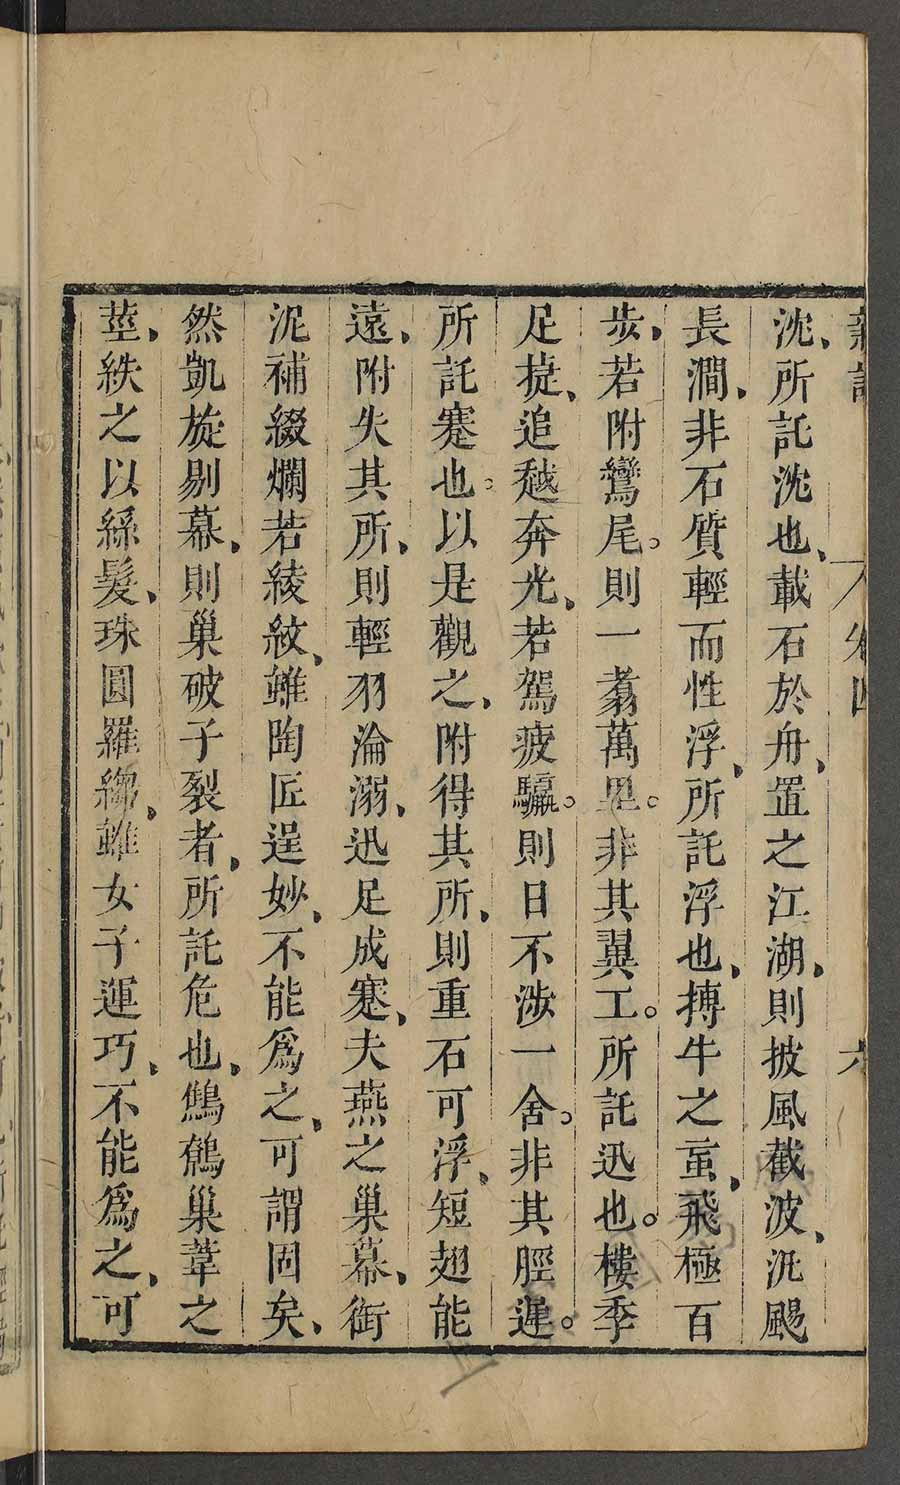 新論 卷四 六
沈、所託沈也、載石於舟、置之江湖、則披風截波、汎颺
長澗、非石質輕而性浮、所託浮也、搏牛之䖟、飛極百
步、若附鸞尾。則一翥萬里。非其翼工。所託迅也。樓季
足捷、追越奔光、若駕疲驢。則日不涉一舍。非其脛遲。
所託蹇也。以是觀之、附得其所、則重石可浮、短翅能
遠、附失其所、則輕羽淪溺、迅足成蹇、夫燕之巢幕、銜
泥補綴爛若綾紋、雖陶匠逞妙、不能爲之、可謂固矣、
然凱旋剔幕、則巢破子裂者、所託危也、鷦鷯巢葦之
莖、紩之以絲髮、珠圓羅縐、雖女子運巧、不能爲之、可